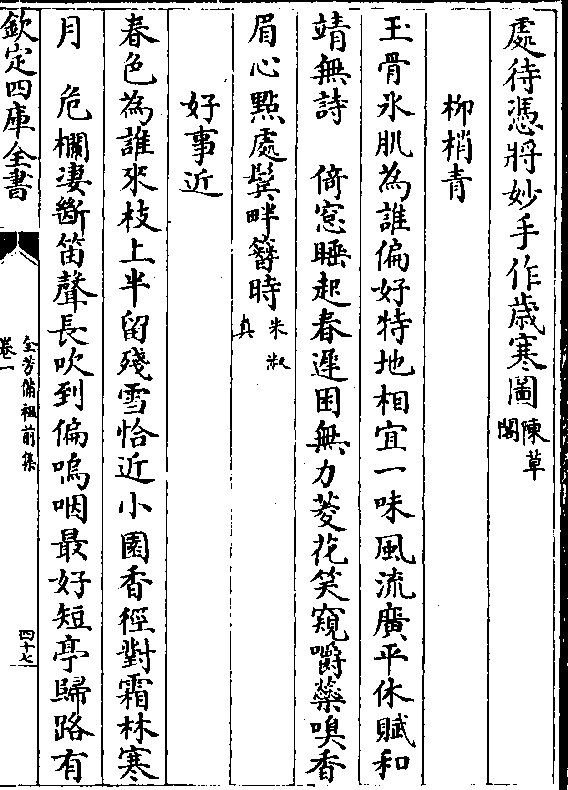 處待憑將妙手作歳寒圖陳草閣
柳梢青
玉骨氷肌為誰偏好特地相宜一味風流廣平休賦和
靖無詩　倚窓睡起春遲困無力菱花笑窺嚼蘂嗅香
眉心㸃處鬓畔簮時朱淑真
好事近
春色為誰來枝上半留殘雪恰近小園香徑對霜林寒
月　危欄凄斷笛聲長吹到偏嗚咽最好短亭歸路有
欽定四庫全書
全芳備祖前集
卷一
四十七